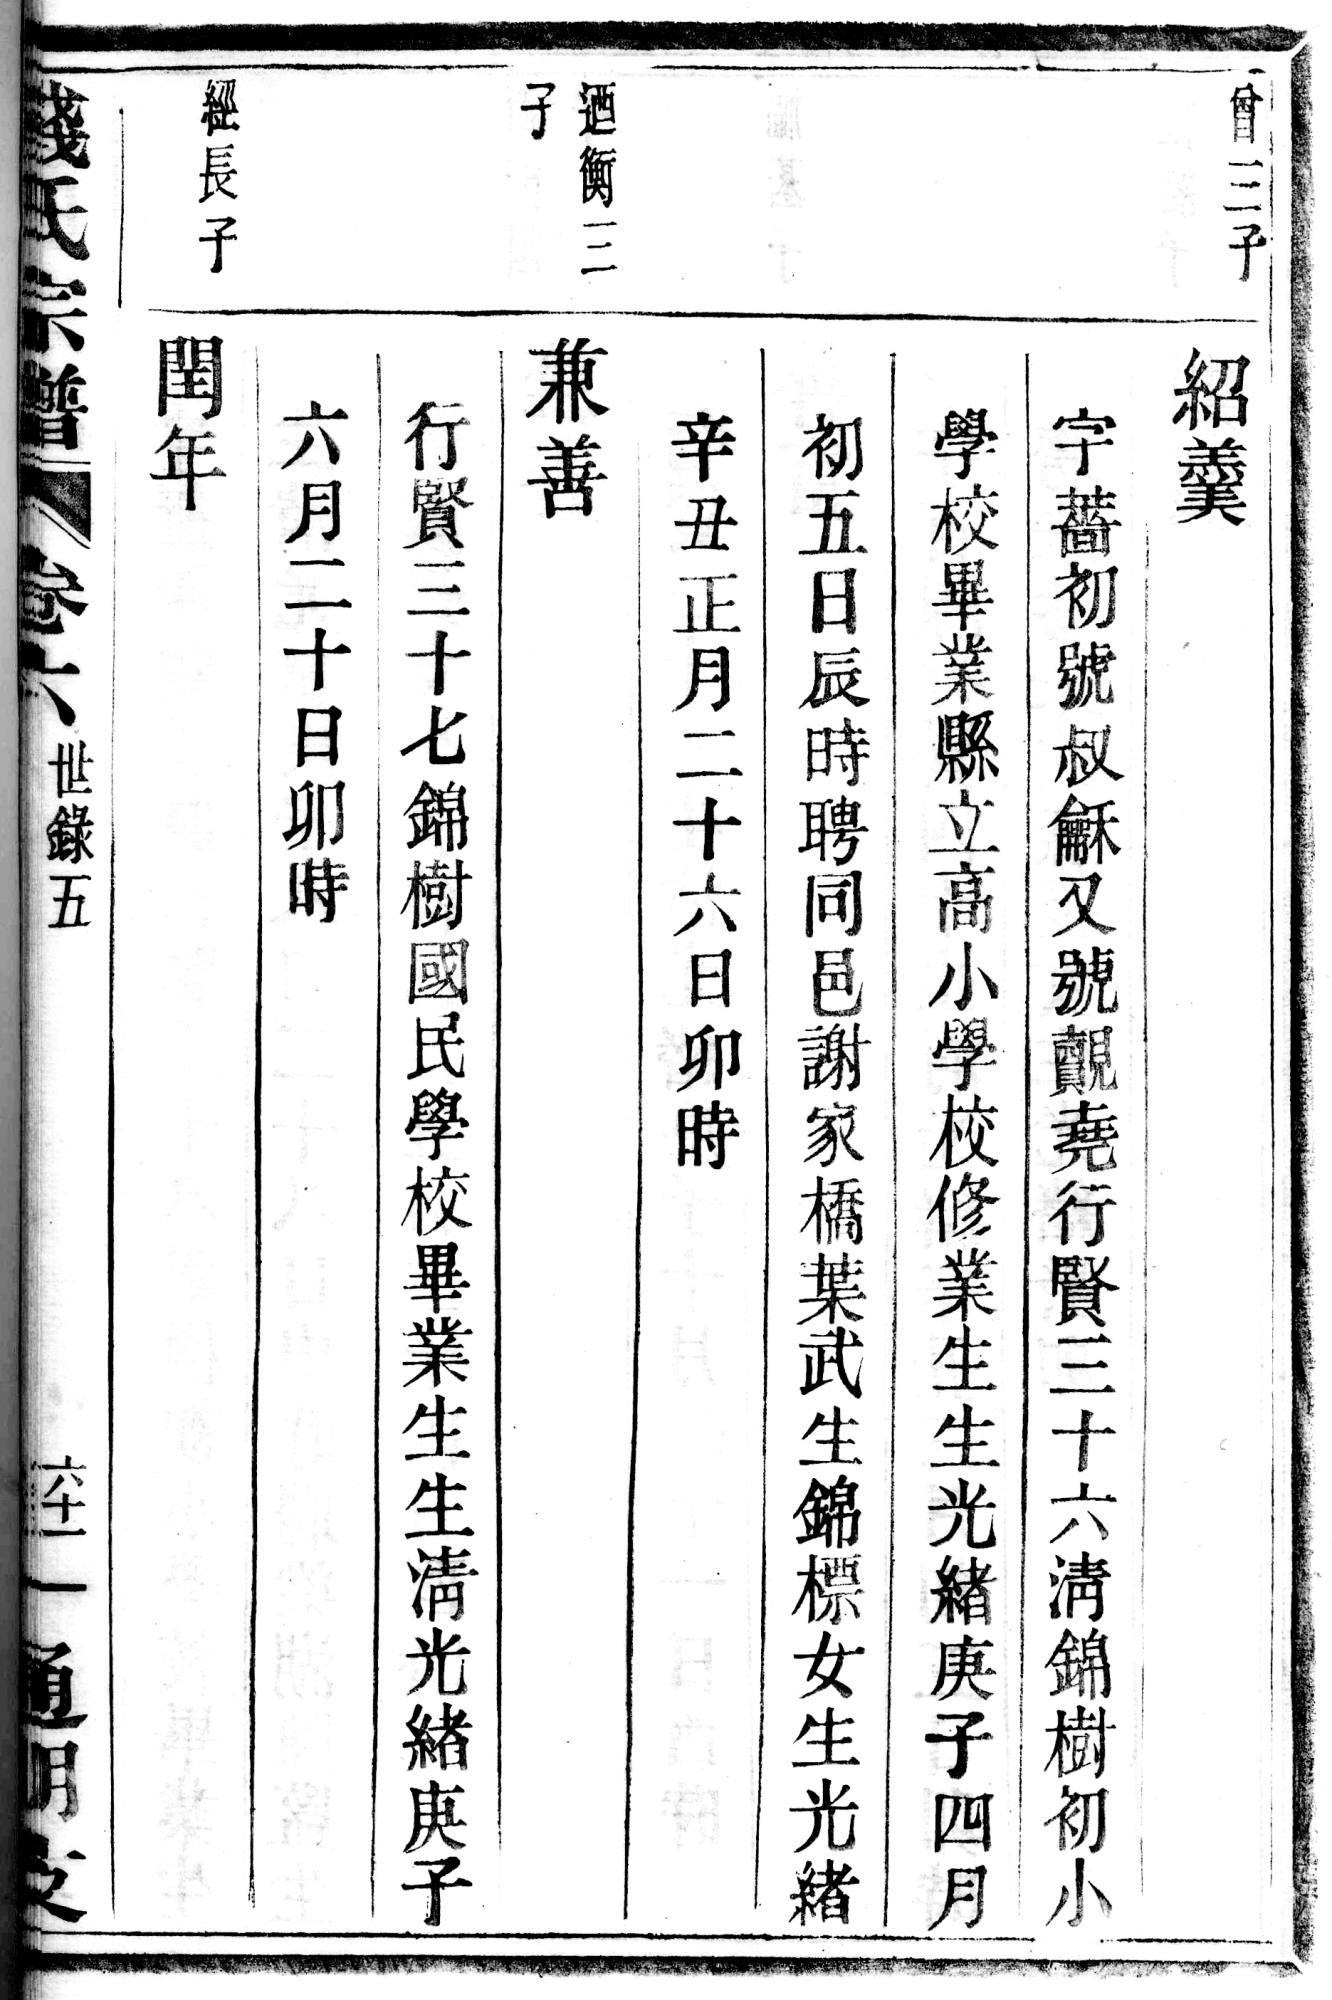 曾三子
紹羹
字薔初號叔龢又號覿堯行賢三十六淸錦樹初小
學校畢業縣立高小學校修業生生光緒庚子四月
初五日辰時聘同邑謝家橋葉武生錦標女生光緒
辛丑正月二十六日卯時
迺衡三
子
兼善
行賢三十七錦樹國民學校畢業生生淸光緒庚子
六月二十日卯時
經長子
閏年
錢氏宗譜
卷六
世錄五
六十一
通明支